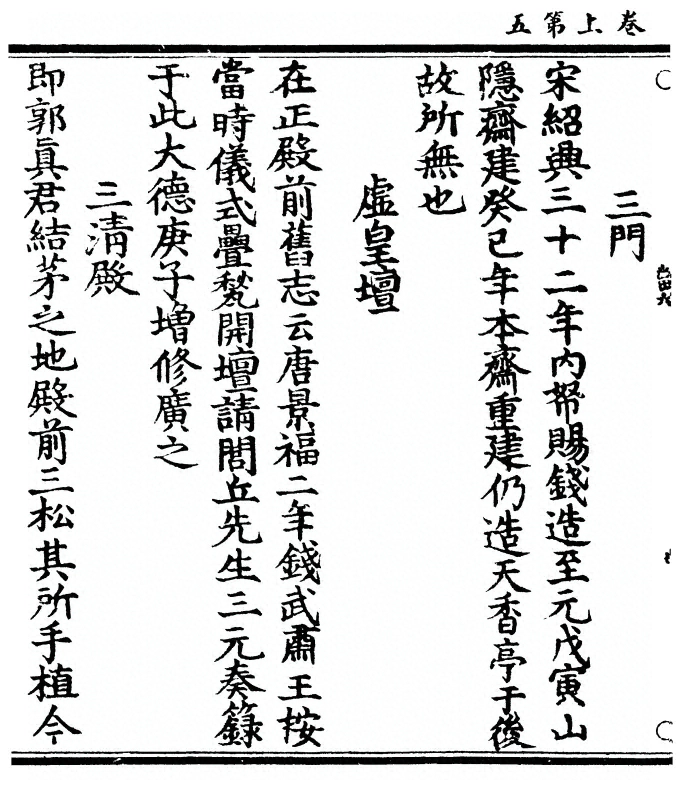 卷上第五
三門
宋紹興三十二年內帑賜錢造至元戊寅山
隱齋建癸巳年本齋重建仍造天香亭于後
故所無也
虛皇壇
在正殿前舊志云唐景福二年錢武肅王按
當時儀式疊甃開壇請閭丘先生三元奏籙
于此大德庚子增修廣之
三清殿
即郭眞君結茅之地殿前三松其所手植今